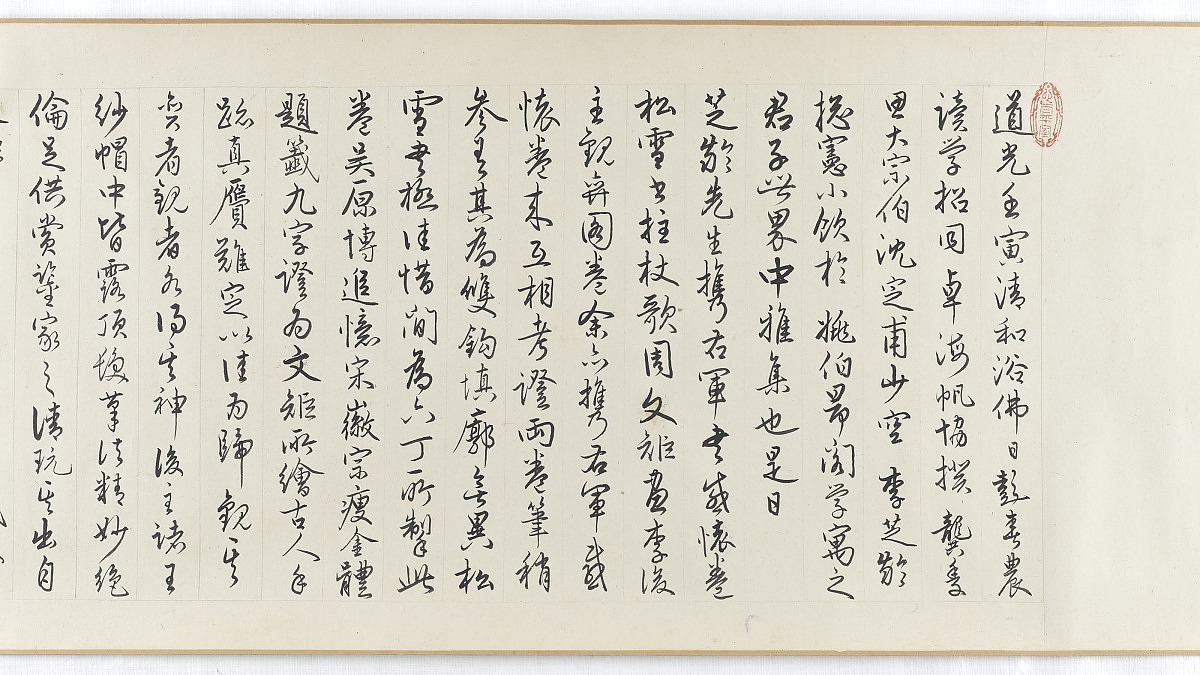 道光壬寅清和浴佛日彭春農
讀學招同卓海帆協揆 龔季
思大宗伯 沈定甫少空 李芝齡
揔憲小飲於 姚伯昂閣學寓之
君子世界中雅集也是日
芝齡先生攜右軍書感懷卷
松雪書拄杖歌周文矩畫李後
主觀弈圖卷余亦攜右軍感
懷卷来互相考證兩卷筆稍
參差其為雙鉤填廓無異松
雪書極佳惜間為六丁所掣此
卷吴原博追憶宋徽宗瘦金體
題籤九字證為文矩所繪古人手
跡真贗難定以佳為歸觀其
弈者觀者各得其神後主諸王
紗帽中皆露頂髮筆法精妙絶
倫足供賞鑒家之清玩其出自